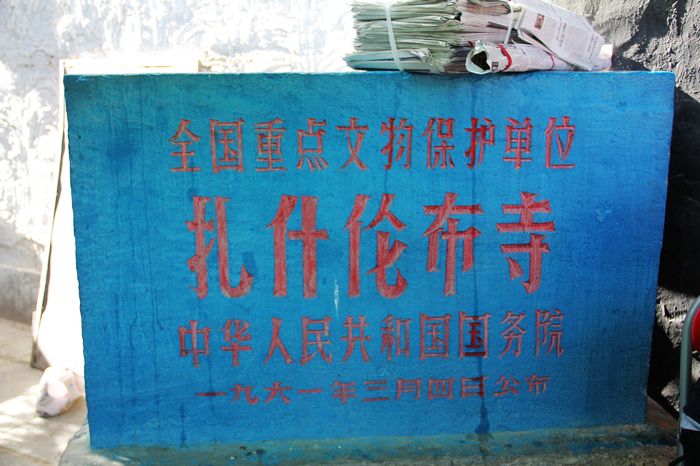 全国重点文物保护单位
扎什伦布寺
中华人民共和国国务院
一九六一年三月四日公布